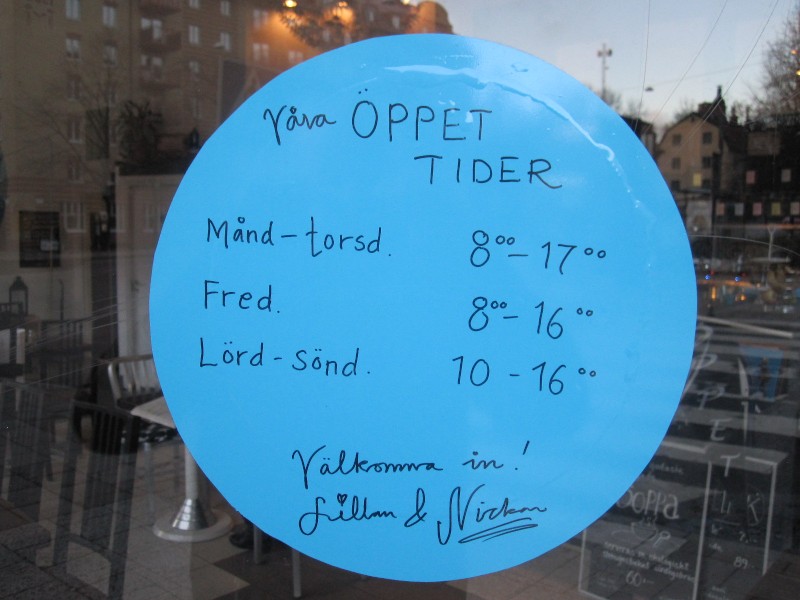 Våra ÖPPET
TIDER
Månd-torsd. 8⁰⁰-17⁰⁰
Fred. 8⁰⁰-16⁰⁰
Lörd-sönd. 10-16⁰⁰
Välkomna in!
Lillan & Nickan
ÖPPET
SOPPA
60
89